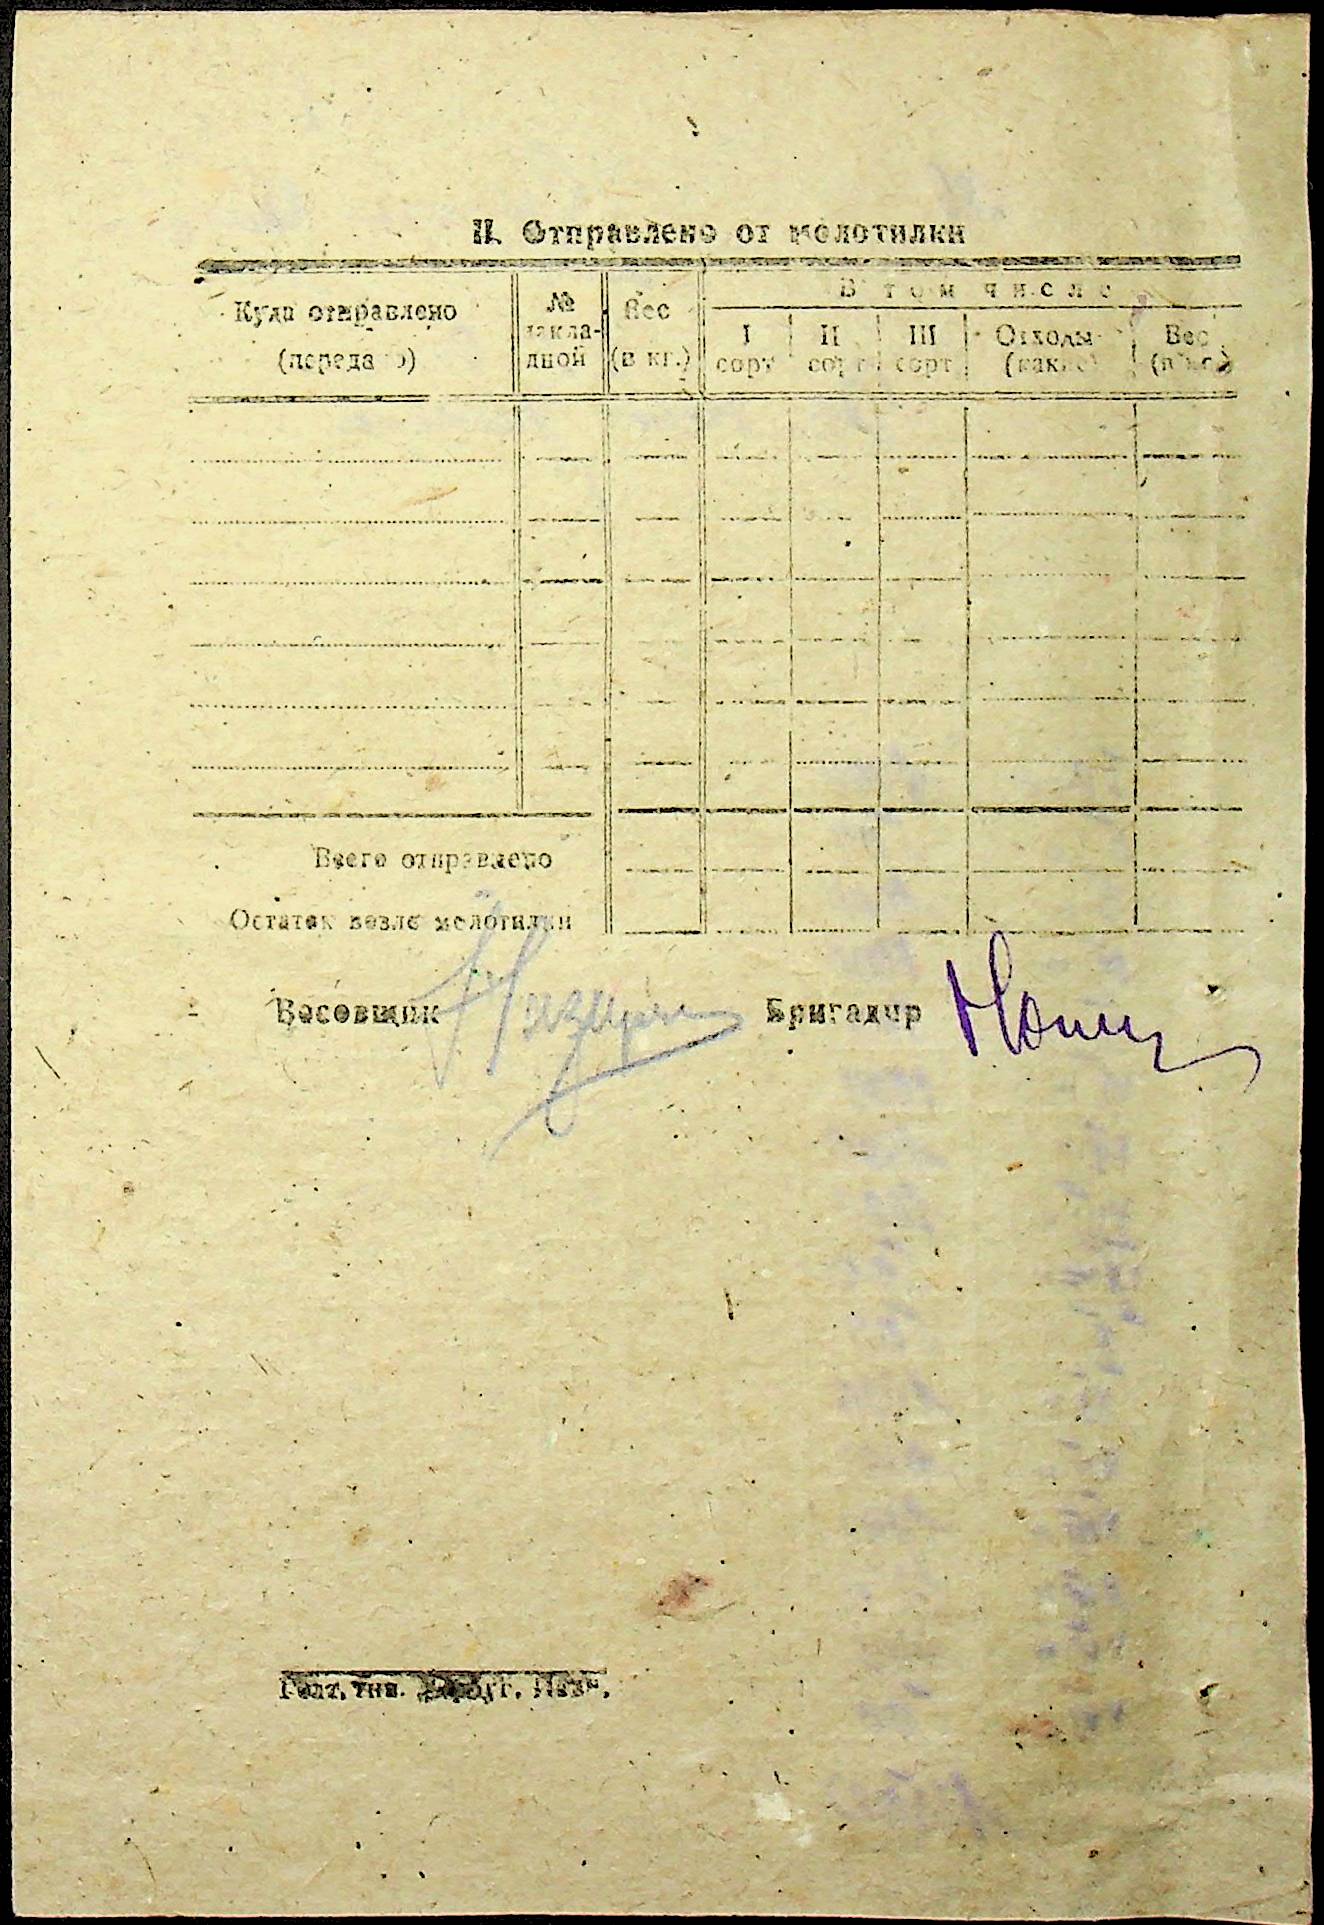 II. Отправлено от молотилки
Куда отправлено
(передано)
№
накла-
дной
Вес
(в кг.)
В том числе
I
сорт
II
сорт
III
сорт
Отходы
(какие)
Вес
(в кг.)
Всего отправлено
Остаток возле молотилки
Весовщик
Бригадир